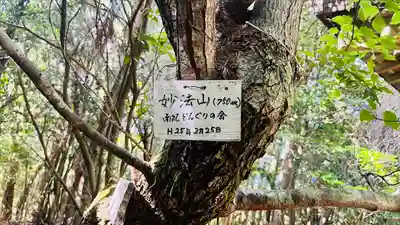 妙法山(750m)
南紀どんぐりの会
H25年2月25日